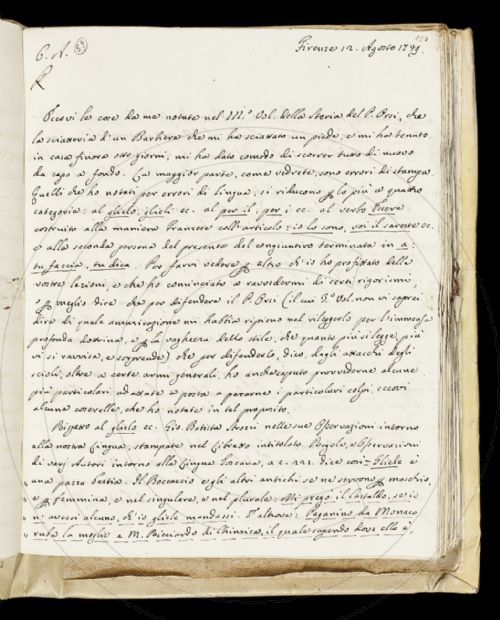 C. A. 63 Firenze 12. Agosto 17
Eccovi le cose da me notate nel III.º Vol. della Storia del P. Orsi, che
la sciatteria d'un Barbiere che mi ha sciattato un piede, e mi ha tenuto
in casa finora otto giorni, mi ha dato comodo di scorrer tutto di nuovo
da capo a fondo. La maggior parte, come vedrete, sono errori di stampa.
Quelli che ho notati per errori di lingua, si riducono p lo più a quattro
categorie: al glielo, glieli ec. al per il, per i ec. al verbo Essere
costruito alla maniera Francese coll'articolo: io lo sono, voi il sarete ec.
e alla seconda persona del presente del congiuntivo terminata in a:
tu faccia, tu dica. Per farvi vedere p altro ch'io ho profittato delle
vostre lezioni, e che ho cominciato a ravvedermi di certi rigorismi,
o p meglio dire che per difendere il P. Orsi (il cui 3.º Vol. non vi saprei
dire di quale ammirazione mi habbia ripieno nel rileggerlo per l'immensa
profonda dottrina, e p la vaghezza dello stile, che quanto più si legge, più
vi si ravvisa, e sorprende) che per difenderlo, dico, dagli attacchi degli
scioli, oltre a certe armi generali, ho anche saputo provvederne alcune
più particolari adattate a posta a pararne i particolari colpi, eccovi
alcune coserelle, che ho notate in tal proposito.
Rispetto al glielo ec. Gio. Batista Strozzi nelle sue Osservazioni intorno
alla nostra Lingua, stampate nel Libretto intitolato Regole, e Osservazioni
di varj Autori intorno alla Lingua Toscana, a c. dice così = Gliele è
una pazza bestia. Il Boccaccio e gli altri antichi se ne servono p maschio,
e p femmina, e nel singulare, e nel plurale: Mi pregò il Castaldo, se io
n'avessi alcuno, ch'io gliele mandassi. E altrove: Paganino da Monaco
ruba la moglie a M. Ricciardo di Chinzica, il quale sapendo dove ella è,